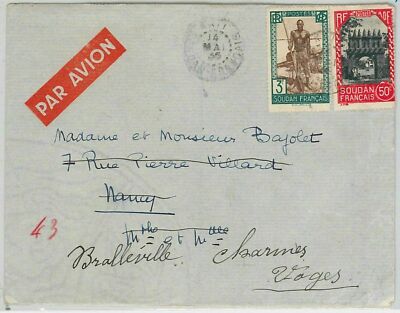 PAR AVION
14
MAI
POSTES
3F
SOUDAN FRANÇAIS
SOUDAN
FRANÇAIS
50c
Madame et Monsieur Bajolet
7 Rue Pierre Villard
Nancy
et
43
Bralleville Charmes
Vosges